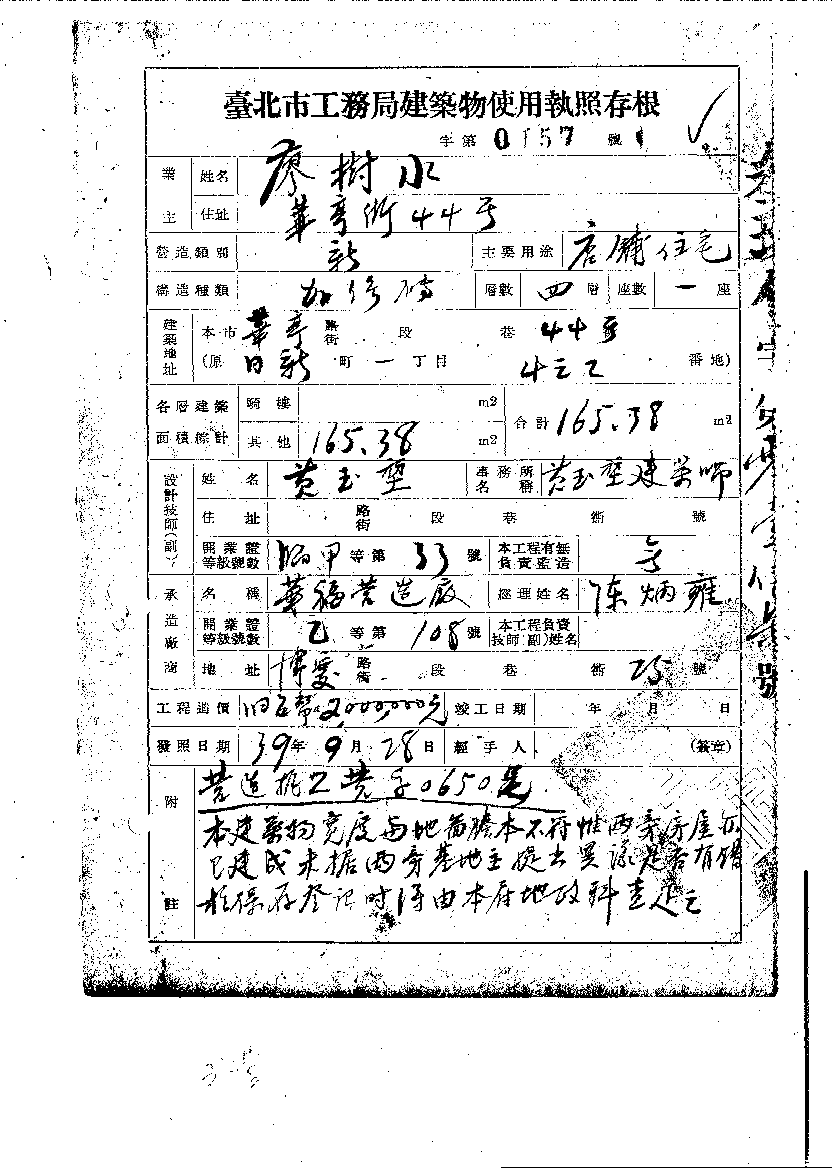 臺北市工務局建築物使用執照存根
字第 0157 號
業主 姓名 廖樹水
住址 華亭街44号
營造類別 新 主要用途 店鋪住宅
構造種類 加強磚 層數 四 層 座數 一 座
建築地址 本市 華亭 路街 段 巷 44号
(原 日新 町 一 丁目 番地)
各層建築面積總計 騎樓 m2 合計 165.38 m2
其他 165.38 m2
設計技師(副) 姓名 黃玉堃 事務所名稱 黃玉堃建築師
住址 路街 段 巷 衖 號
開業證等級號數 甲 等第 33 號 本工程有無負責監造
承造廠商 名稱 華福營造廠 經理姓名 陳炳雍
開業證等級號數 乙 等第 108 號 本工程負責技師(副)姓名
地址 博愛 路街 段 巷 衖 25 號
工程造價 旧台幣2,000,000元 竣工日期 年 月 日
發照日期 39年9月28日 經手人 (簽章)
附註 營造執工營字0650号
本建築物寬度与地面謄本不符惟兩旁房屋
已建成未据兩旁基地主提出異議是否有錯
保存登记时得由本府地政科查定之